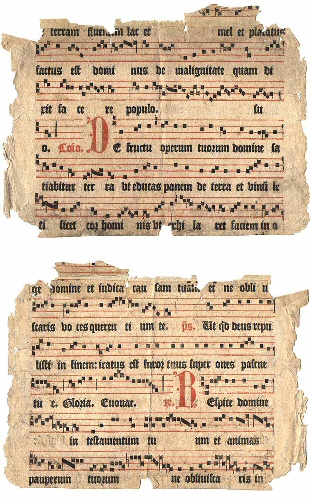 terram fluentem lac et mel et placatus
factus est domi nus de malignitate quam de
xit fa ce re populo. su
o. Coio. D E fructu operum tuorum domine sa
tiabitur ter ra vt educas panem de terra et vinū le
ti ficet cor homi nis vt exhi la ret faciem in o
ge domine et iudica cau sam tuā et ne obli ui
scaris vo ces queren ti um te. ps. Ut qd deus repu
listi in finem: iratus est furor tuus super oues pascue
tu e. Gloria. Euouae. R Espice domine
in testamentum tu um et animas
pauperum tuorum ne obliuisca ris in